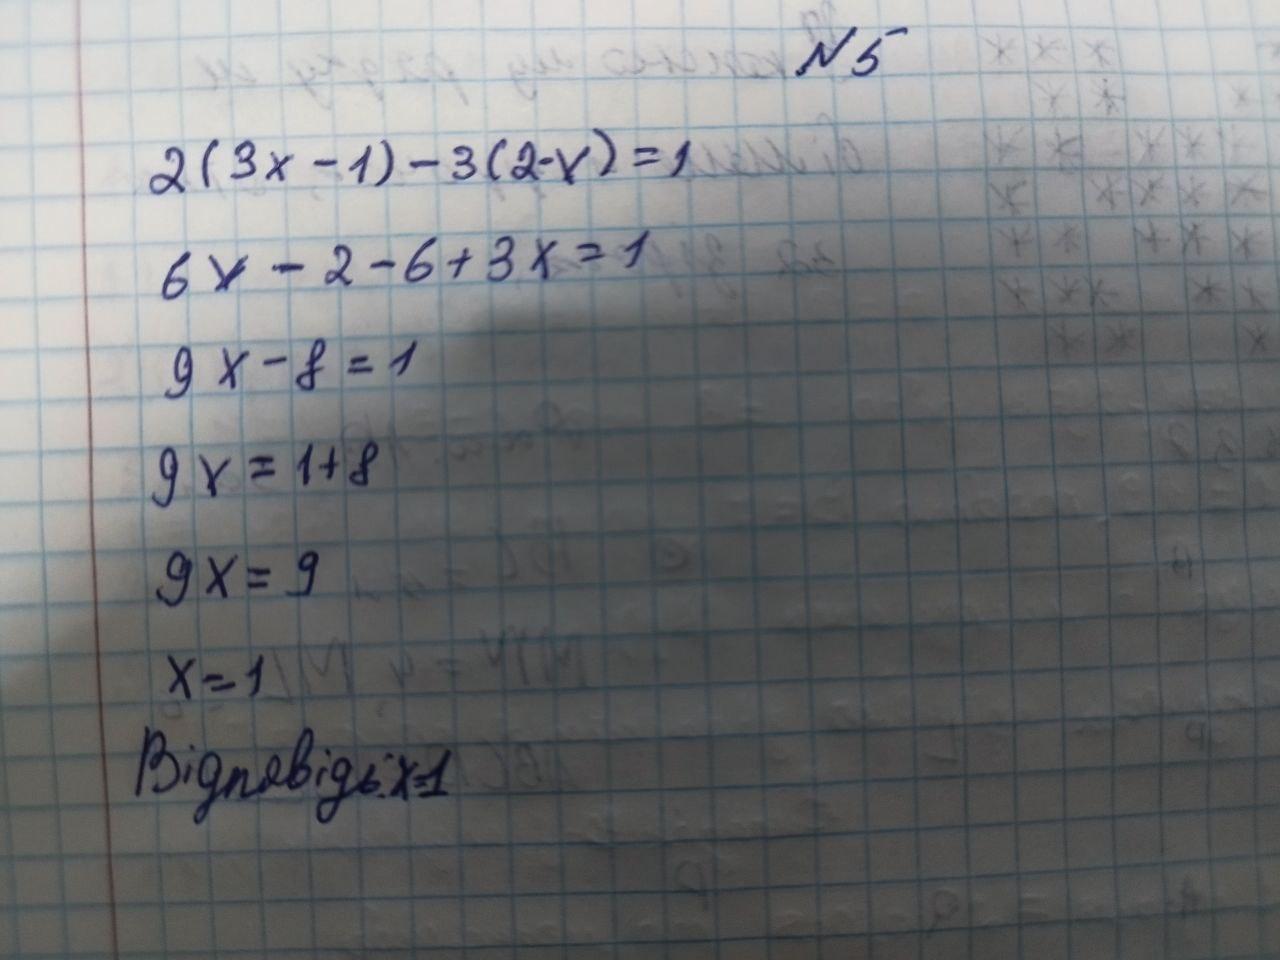 N5
2(3x-1)-3(2-x)=1
6x-2-6+3x=1
9x-8=1
9x=1+8
9x=9
x=1
Відповідь: x=1